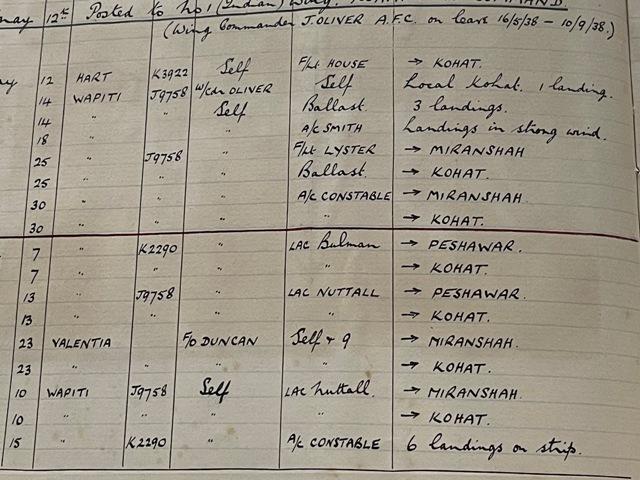 may 12th Posted to No 1 (Indian) Wing.
(Wing Commander J. OLIVER A.F.C. on leave 16/5/38 - 10/9/38.)
12 HART K3922 Self F/Lt HOUSE → KOHAT.
14 WAPITI J9758 W/Cdr OLIVER Self Local Kohat. 1 landing.
14 " " Self Ballast. 3 landings.
18 " " A/C SMITH Landings in strong wind.
25 " J9758 " F/Lt LYSTER → MIRANSHAH
25 " " " Ballast. → KOHAT.
30 " " " A/C CONSTABLE → MIRANSHAH.
30 " " " " → KOHAT.
7 " K2290 " LAC Bulman → PESHAWAR.
7 " " " " → KOHAT.
13 " J9758 " LAC NUTTALL → PESHAWAR.
13 " " " " → KOHAT.
23 VALENTIA F/O DUNCAN Self + 9 → MIRANSHAH.
23 " " " → KOHAT.
10 WAPITI J9758 Self LAC Nuttall. → MIRANSHAH.
10 " " " " → KOHAT.
15 " K2290 " A/C CONSTABLE 6 landings on strip.